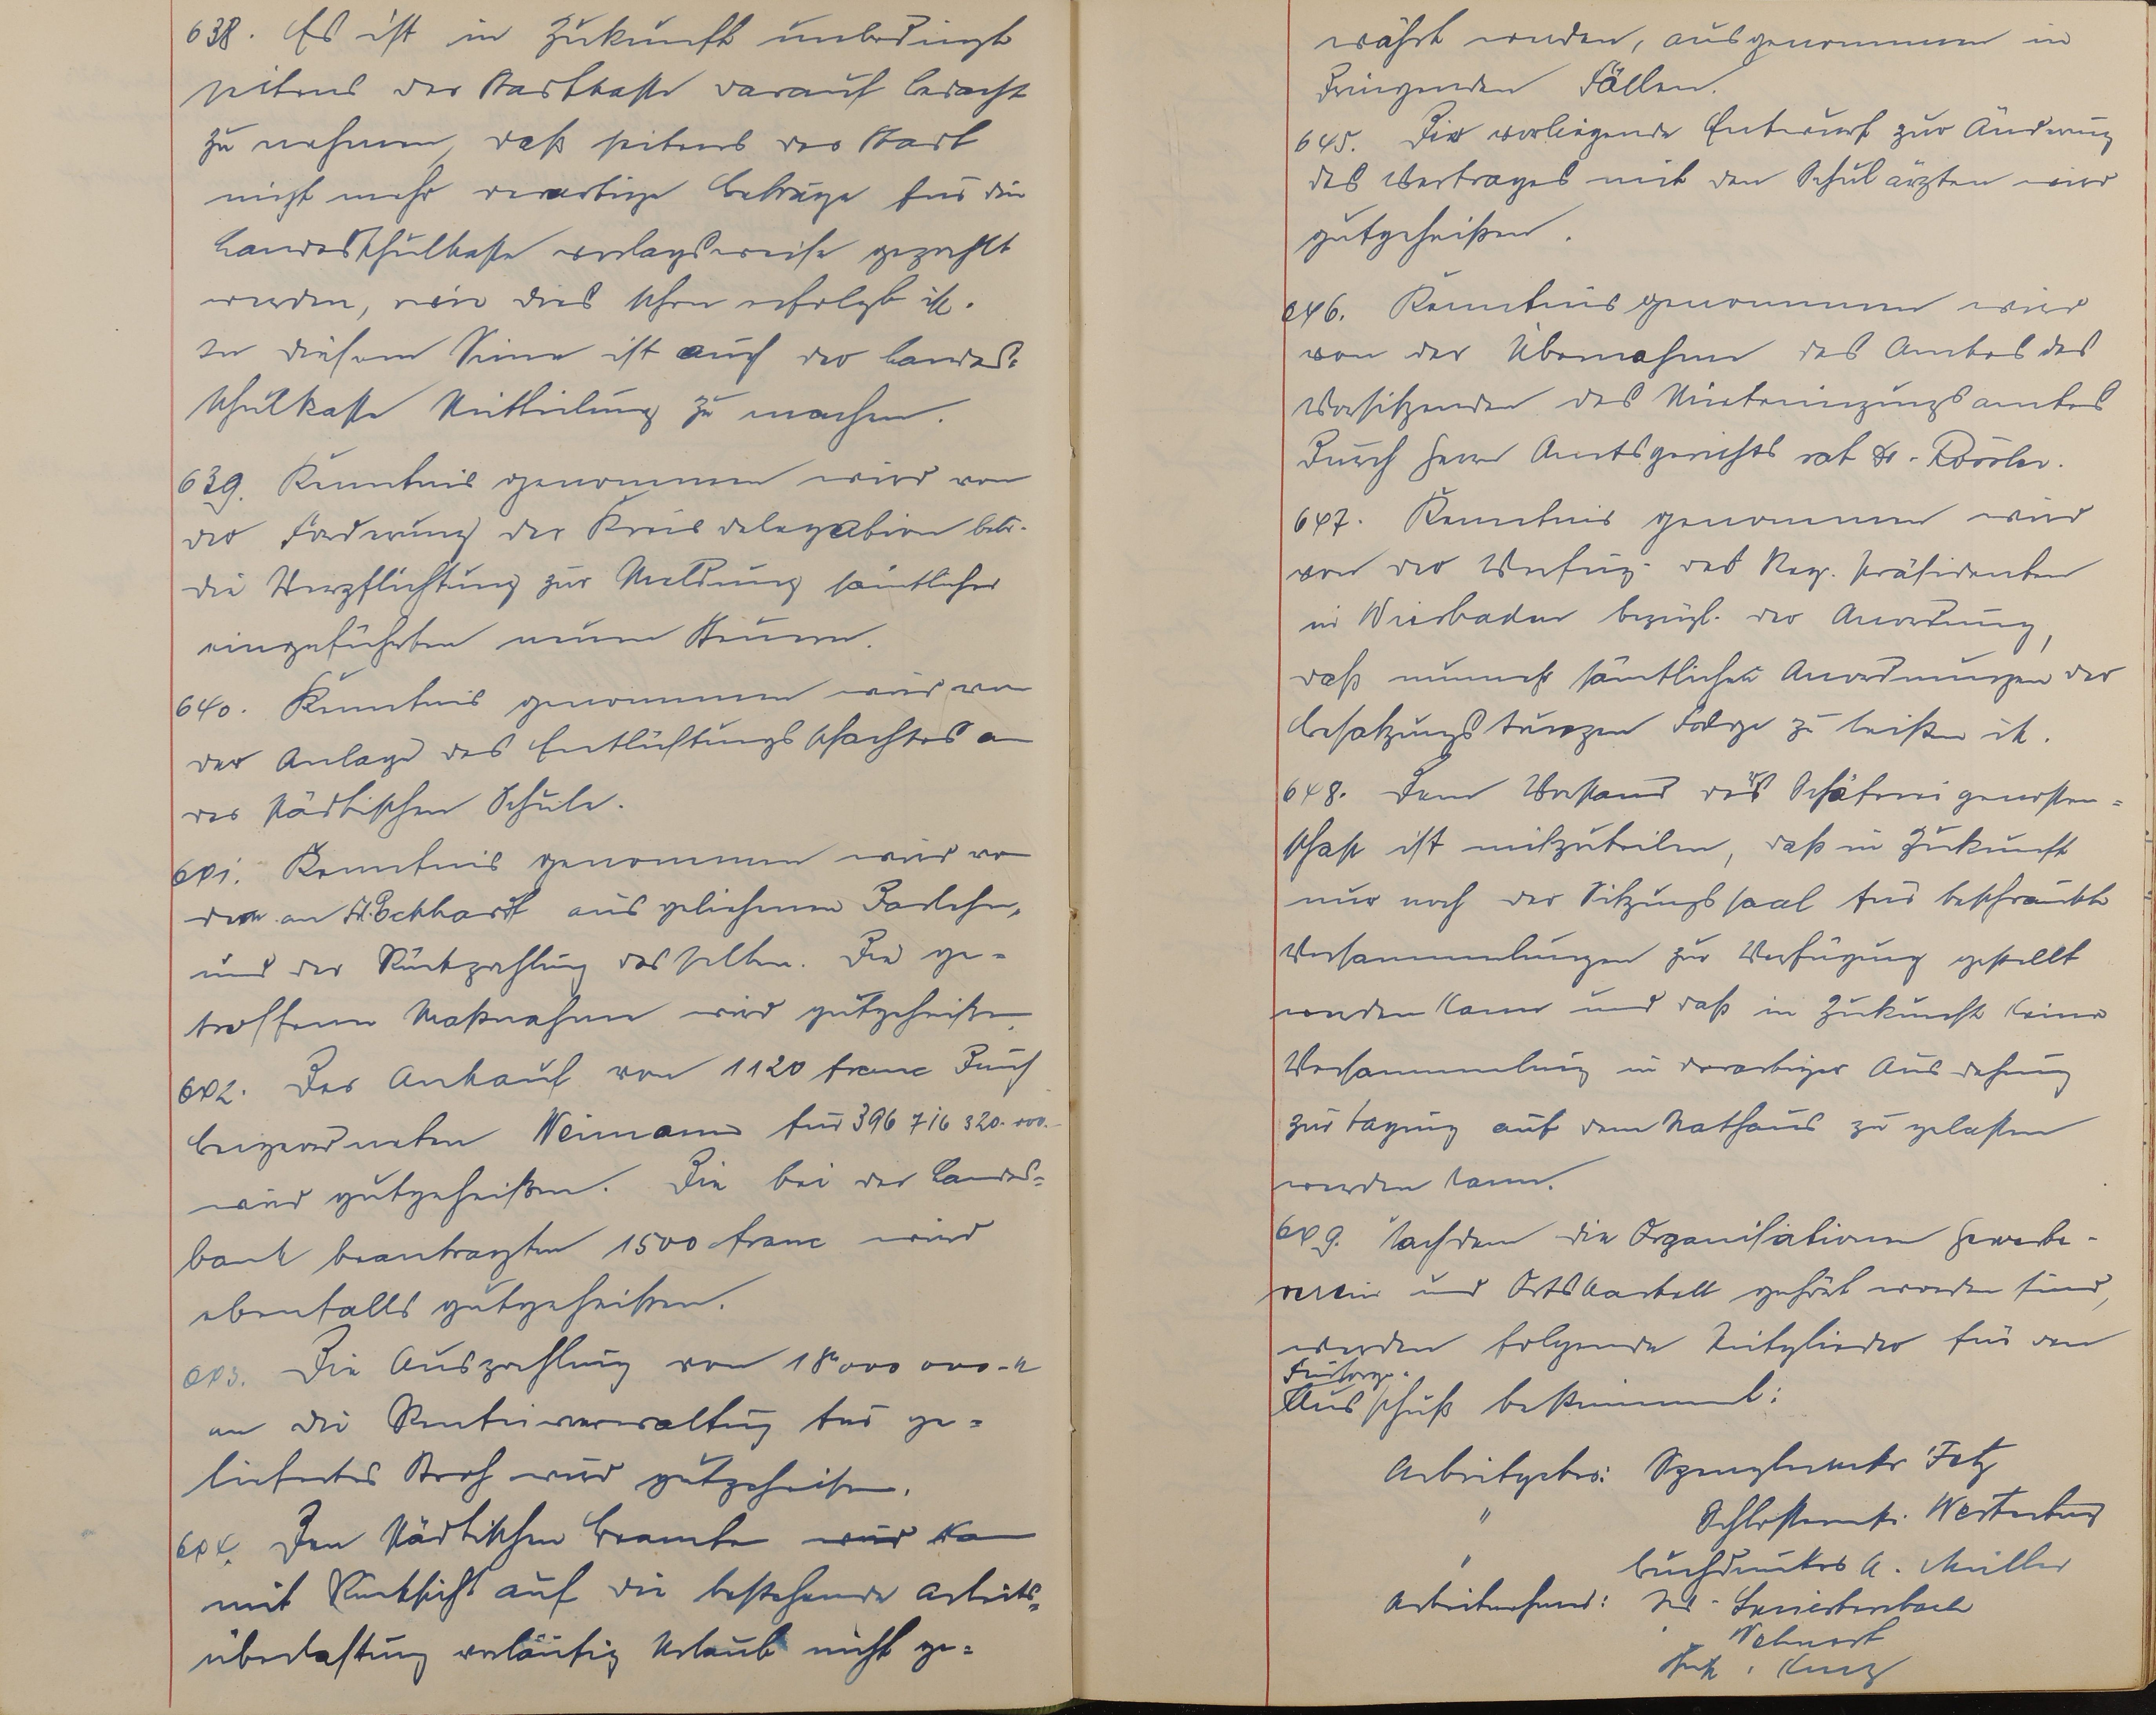 638. Es ist in Zukunft unbedingt
seitens der Stadtkasse darauf bedacht
zu nehmen, daß seitens der Stadt
nicht mehr derartige Beträge für die
Landesschulkasse verlagsweise gezahlt
werden, wie dies schon erfolgt ist.
In diesem Sinne ist auch der Landes=
schulkasse Mitteilung zu machen.
639. Kenntnis genommen wird von
der Forderung der Kreisdelegation betr.
die Verpflichtung zur Meldung sämtlicher
eingeführten neuen Steuern.
640. Kenntnis genommen wird von
der Anlage des Entlüftungsschachtes an
der städtischen Schule.
641. Kenntnis genommen wird von
dem an H. Eckhardt ausgeliehenen Darlehn,
und der Rückzahlung desselben. Die ge-
troffene Maßnahme wird gutgeheißen.
642. Der Ankauf von 1120 franc durch
Beigeordneten Weimann für 396 716 320.000.-
wird gutgeheißen. Die bei der Landes=
bank beantragten 1500 franc wird
ebenfalls gutgeheißen.
643. Die Auszahlung von 18 000 000.-M
an die Renteiverwaltung für ge=
liefertes Stroh wird gutgeheißen.
644. Den städtischen Beamten wird kann
mit Rücksicht auf die bestehende Arbeits=
überlastung vorläufig Urlaub nicht ge=
währt werden, ausgenommen in
dringenden Fällen.
645. Der vorliegende Entwurf zur Änderung
des Vertrages mit den Schulärzten wird
gutgeheißen.
646. Kenntnis genommen wird
von der Übernahme des Amtes des
Vorsitzenden des Mieteinigungsamtes
durch Herrn Amtsgerichtsrat Dr. Rössler.
647. Kenntnis genommen wird
von der Verfüg. des Reg. Präsidenten
in Wiesbaden bezügl. der Anordnung,
daß nunmehr sämtlichen Anordnungen der
Besatzungstruppen Folge zu leisten ist.
648. Dem Vorstand der Schäfereigenossen=
schaft ist mitzuteilen, daß in Zukunft
nur noch der Sitzungssaal für beschränkte
Versammlungen zur Verfügung gestellt
werden kann und daß in Zukunft keine
Versammlung in derartiger Ausdehnung
zur Tagung auf dem Rathaus zu gelassen
werden kann.
649. Nachdem die Organisationen Gewerbe-
verein und Ortskartell gehört worden sind,
werden folgende Mitglieder für den
Fürsorge-
Ausschuß bestimmt:
Arbeitgeber: Spenglermstr. Fetz
" Schlossermstr. Westerburg
" Buchdrucker A. Müller
Arbeitnehmer:
Wehnert
Kurz